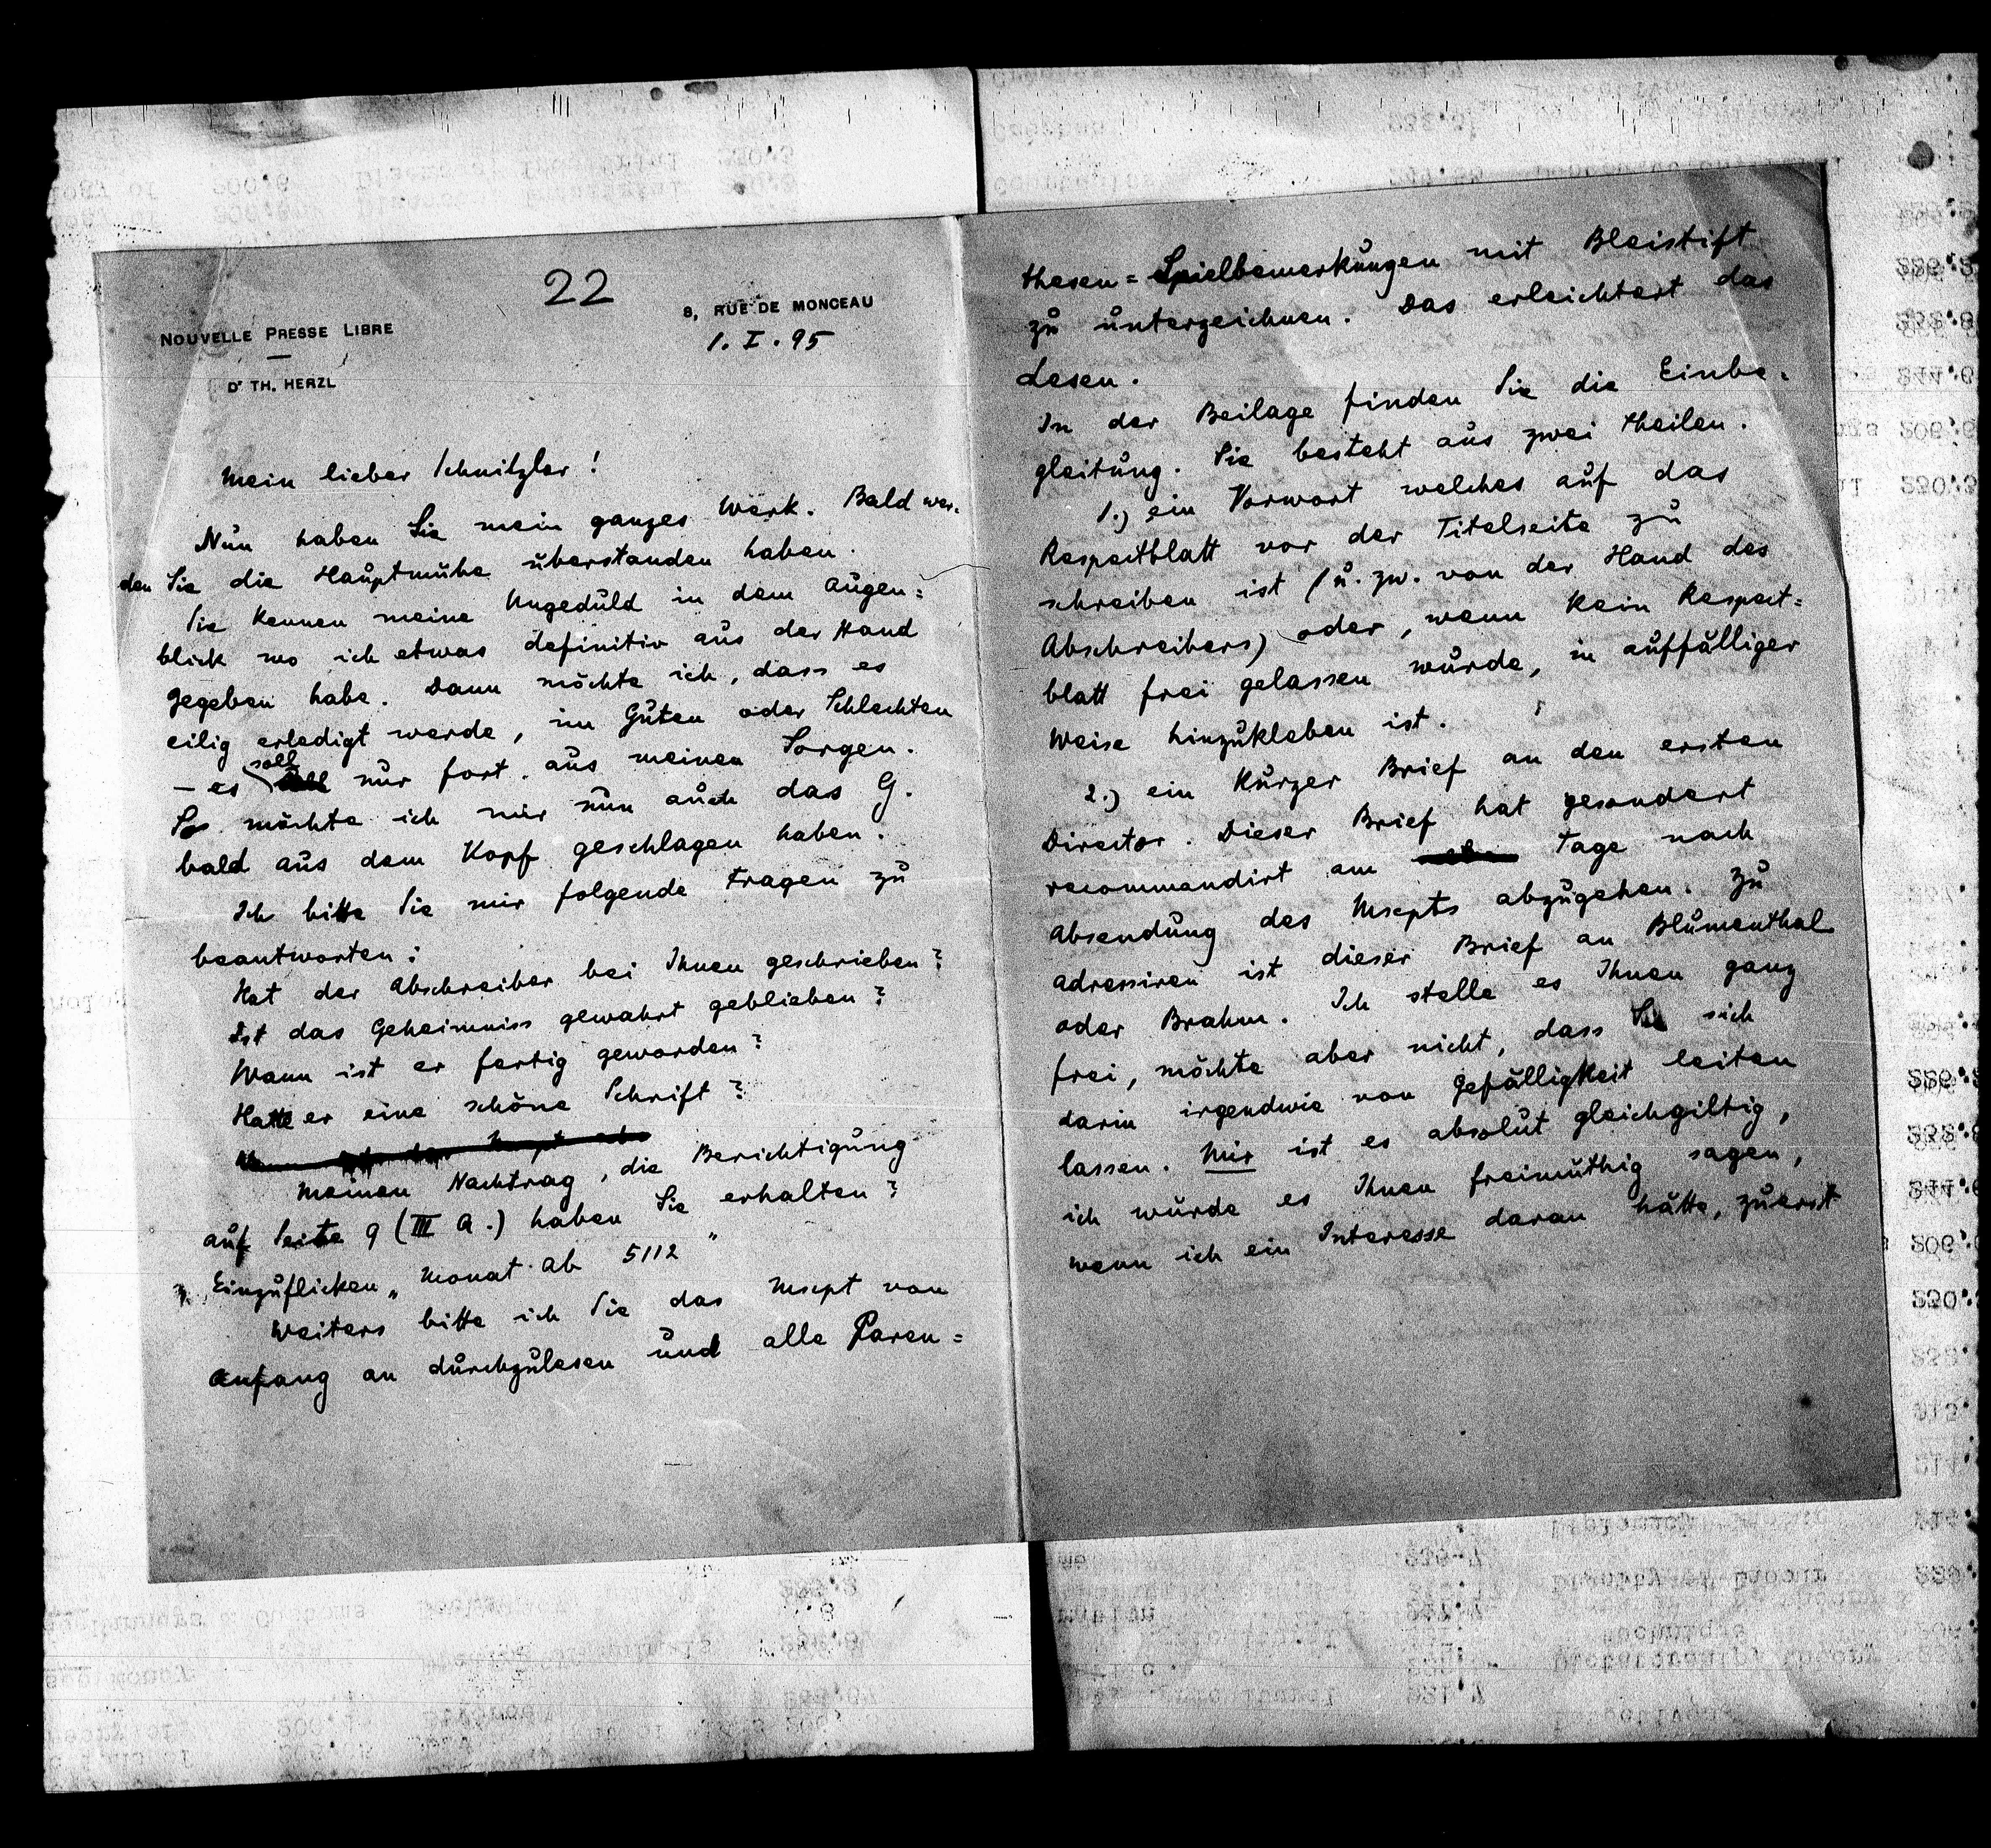 22
NOUVELLE PRESSE LIBRE
8, RUE DE MONCEAU
Dr TH. HERZL
1. I. 95
Mein lieber Schnitzler!
Nun haben Sie mein ganzes Werk. Bald wer-
den Sie die Hauptmühe überstanden haben.
Sie kennen meine Ungeduld in dem Augen=
blick wo ich etwas definitiv aus der Hand
gegeben habe. Dann möchte ich, dass es
eilig erledigt werde, im Guten oder Schlechten
— es soll nur fort. aus meinen Sorgen.
So möchte ich mir nun auch das G.
bald aus dem Kopf geschlagen haben.
Ich bitte Sie mir folgende Fragen zu
beantworten:
Hat der Abschreiber bei Ihnen geschrieben?
Ist das Geheimniss gewahrt geblieben?
Wann ist er fertig geworden?
Hatte er eine schöne Schrift?
Meinen Nachtrag, die Berichtigung
auf Seite 9 (III A.) haben Sie erhalten?
Einzuflicken „Monat ab 5112"
Weiters bitte ich Sie das Mscpt von
Anfang an durchzulesen und alle Paren=
thesen = Spielbemerkungen mit Bleistift
zu unterzeichnen. Das erleichtert das
Lesen.
In der Beilage finden Sie die Einbe-
gleitung. Sie besteht aus zwei Theilen.
1.) ein Vorwort welches auf das
Respectblatt vor der Titelseite zu
schreiben ist (u. zw. von der Hand des
Abschreibers) oder, wenn kein Respect=
blatt frei gelassen wurde, in auffälliger
Weise hinzukleben ist.
2.) ein kurzer Brief an den ersten
Director. Dieser Brief hat gesondert
recommandirt am Tage nach
Absendung des Mscpts abzugehen. Zu
adressiren ist dieser Brief an Blumenthal
oder Brahm. Ich stelle es Ihnen ganz
frei, möchte aber nicht, dass Sie sich
darin irgendwie von Gefälligkeit leiten
lassen. Mir ist es absolut gleichgiltig,
ich würde es Ihnen freimüthig sagen,
wenn ich ein Interesse daran hätte, zuerst